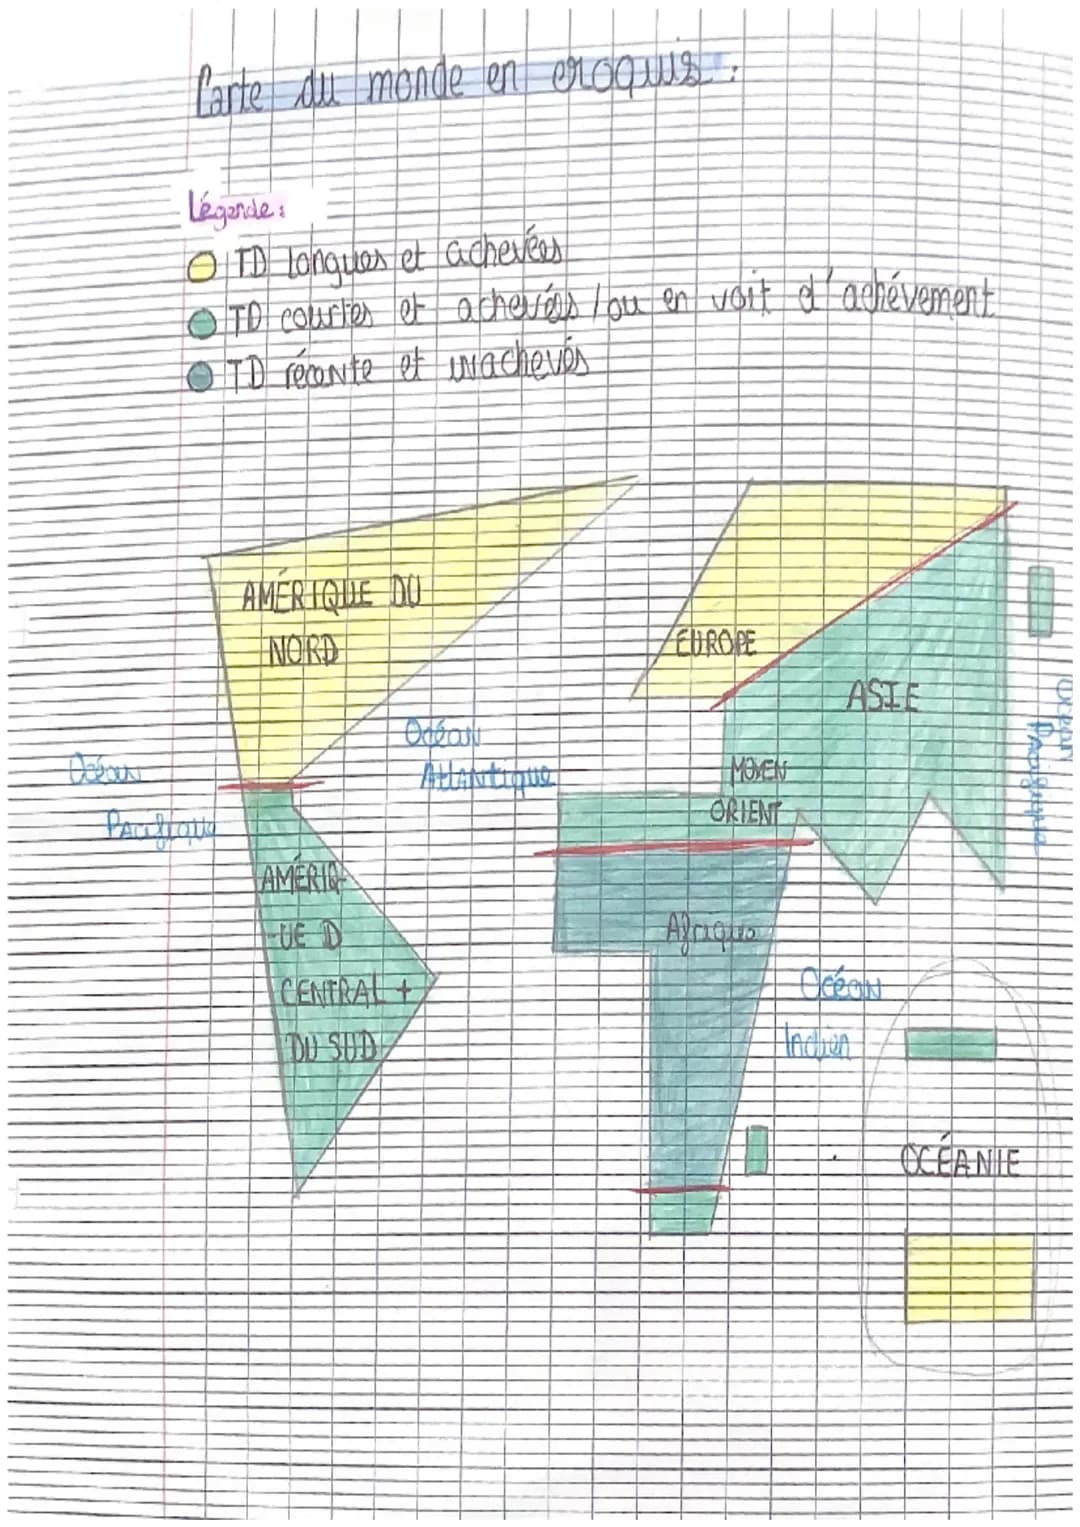 Carte du monde en croquis :
Légende :
TD longues et achevées
TD courtes et achevées / ou en voit d'achévement
TD récente et inachevés
AMÉRIQUE DU
NORD
EUROPE
ASIE
Océan
Atlantique
Océan
Pacifique
Océan
Pacifique
MOYEN
ORIENT
AMÉRIQ-
-UE D
CENTRAL +
DU SUD
Afrique
Océan
Indien
OCÉANIE